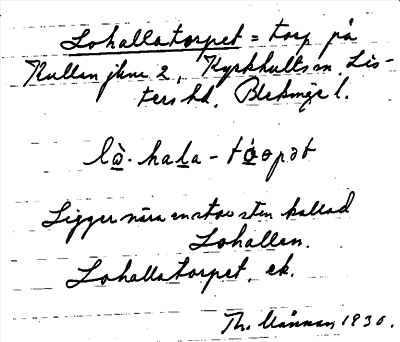 Lohallatorpet = torp på
Kullan jbnr 2, Kyrkhults sn Lis-
ters hd, Blekinge l.
là·haḻa-tά̱ɵpət
Ligger nära en stor sten kallad
Lohallen.
Lohallatorpet, ek.
Th. Månman 1930.